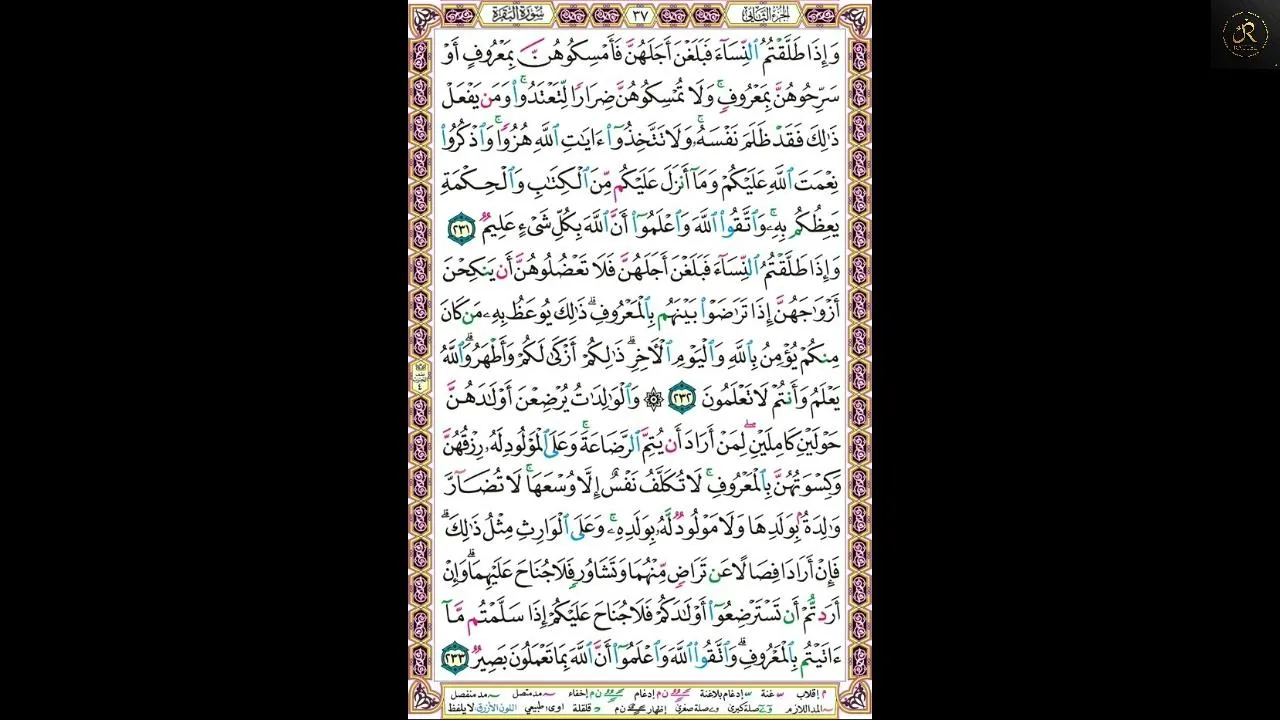 الجزء الثاني ٣٧ سورة البقرة
وَإِذَا طَلَّقْتُمُ ٱلنِّسَآءَ فَبَلَغْنَ أَجَلَهُنَّ فَأَمْسِكُوهُنَّ بِمَعْرُوفٍ أَوْ
سَرِّحُوهُنَّ بِمَعْرُوفٍۚ وَلَا تُمْسِكُوهُنَّ ضِرَارًا لِّتَعْتَدُوا۟ۚ وَمَن يَفْعَلْ
ذَٰلِكَ فَقَدْ ظَلَمَ نَفْسَهُۥۚ وَلَا تَتَّخِذُوٓا۟ ءَايَٰتِ ٱللَّهِ هُزُوًاۚ وَٱذْكُرُوا۟
نِعْمَتَ ٱللَّهِ عَلَيْكُمْ وَمَآ أَنزَلَ عَلَيْكُم مِّنَ ٱلْكِتَٰبِ وَٱلْحِكْمَةِ
يَعِظُكُم بِهِۦۚ وَٱتَّقُوا۟ ٱللَّهَ وَٱعْلَمُوٓا۟ أَنَّ ٱللَّهَ بِكُلِّ شَىْءٍ عَلِيمٌ ٢٣١
وَإِذَا طَلَّقْتُمُ ٱلنِّسَآءَ فَبَلَغْنَ أَجَلَهُنَّ فَلَا تَعْضُلُوهُنَّ أَن يَنكِحْنَ
أَزْوَٰجَهُنَّ إِذَا تَرَٰضَوْا۟ بَيْنَهُم بِٱلْمَعْرُوفِۗ ذَٰلِكَ يُوعَظُ بِهِۦ مَن كَانَ
مِنكُمْ يُؤْمِنُ بِٱللَّهِ وَٱلْيَوْمِ ٱلْـَٔاخِرِۗ ذَٰلِكُمْ أَزْكَىٰ لَكُمْ وَأَطْهَرُۗ وَٱللَّهُ
يَعْلَمُ وَأَنتُمْ لَا تَعْلَمُونَ ٢٣٢ ۞ وَٱلْوَٰلِدَٰتُ يُرْضِعْنَ أَوْلَٰدَهُنَّ
حَوْلَيْنِ كَامِلَيْنِۖ لِمَنْ أَرَادَ أَن يُتِمَّ ٱلرَّضَاعَةَۚ وَعَلَى ٱلْمَوْلُودِ لَهُۥ رِزْقُهُنَّ
وَكِسْوَتُهُنَّ بِٱلْمَعْرُوفِۚ لَا تُكَلَّفُ نَفْسٌ إِلَّا وُسْعَهَاۚ لَا تُضَآرَّ
وَٰلِدَةٌۢ بِوَلَدِهَا وَلَا مَوْلُودٌ لَّهُۥ بِوَلَدِهِۦۚ وَعَلَى ٱلْوَارِثِ مِثْلُ ذَٰلِكَۗ
فَإِنْ أَرَادَا فِصَالًا عَن تَرَاضٍ مِّنْهُمَا وَتَشَاوُرٍ فَلَا جُنَاحَ عَلَيْهِمَاۗ وَإِنْ
أَرَدتُّمْ أَن تَسْتَرْضِعُوٓا۟ أَوْلَٰدَكُمْ فَلَا جُنَاحَ عَلَيْكُمْ إِذَا سَلَّمْتُم مَّآ
ءَاتَيْتُم بِٱلْمَعْرُوفِۗ وَٱتَّقُوا۟ ٱللَّهَ وَٱعْلَمُوٓا۟ أَنَّ ٱللَّهَ بِمَا تَعْمَلُونَ بَصِيرٌ ٢٣٣
م إقلاب غنة إدغام بلاغنة ن م إدغام ن م إخفاء مد متصل مد منفصل
المد اللازم صلة كبرى صلة صغرى إظهار ن م د قلقلة اوى طبيعي اللون الأزرق لا يلفظ